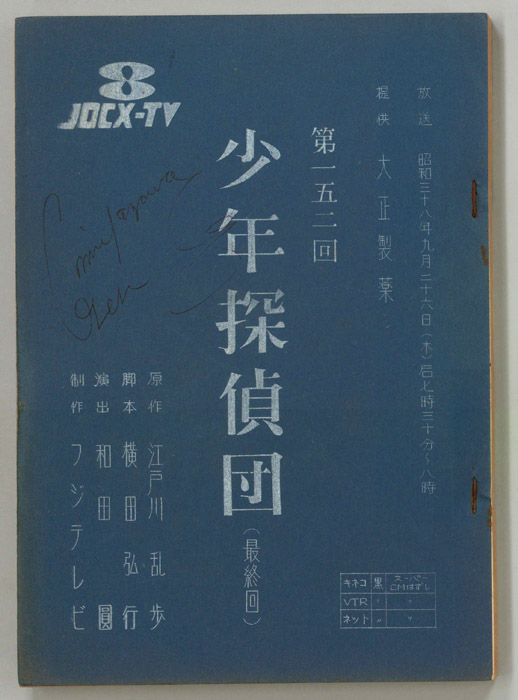 8
JOCX-TV
放送 昭和三十八年九月二十六日(木)后七時三十分~八時
提供 大正製薬
第一五二回
少年探偵団(最終回)
原作 江戸川乱歩
脚本 横田弘行
演出 和田圓
制作 フジテレビ
キネコ 黒 スーパーCMはずし
VTR 〃 〃
ネット 〃 〃